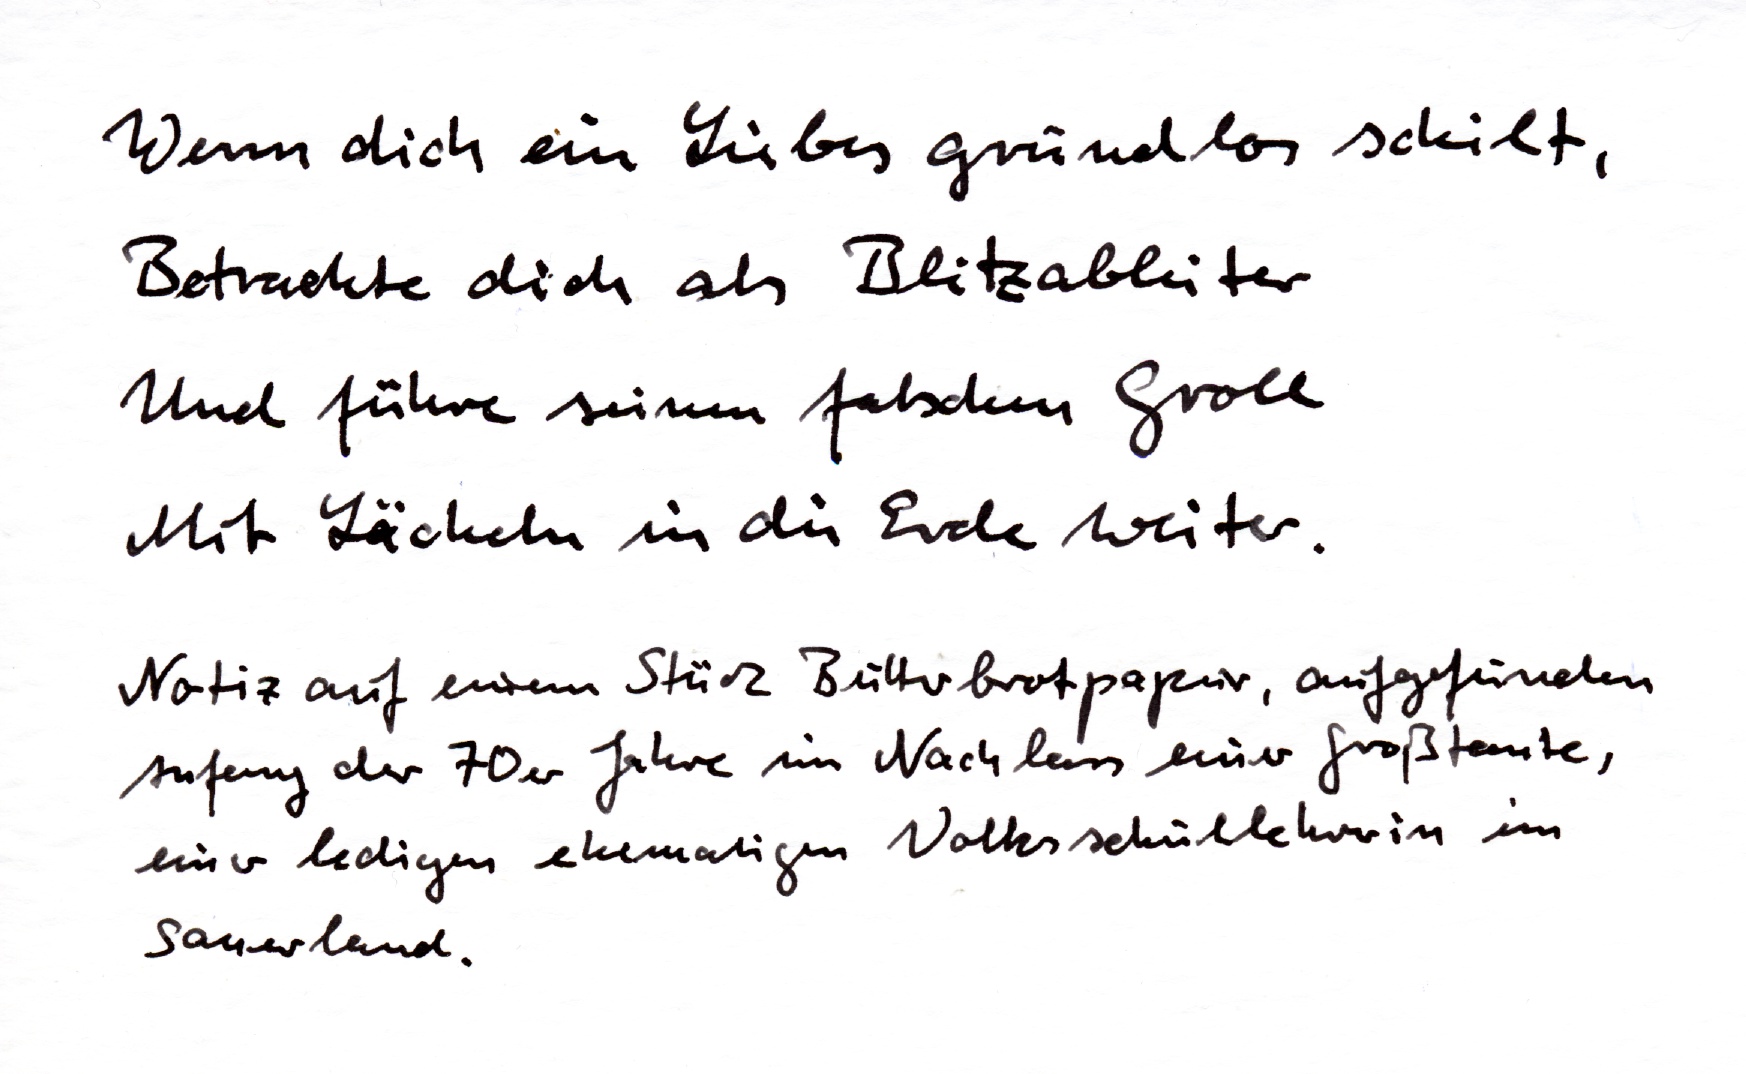 Wenn dich ein Liebes grundlos schilt,
Betrachte dich als Blitzableiter
Und führe seinen falschen Groll
Mit Lächeln in die Erde weiter.
Notiz auf einem Stück Butterbrotpapier, aufgefunden
Anfang der 70er Jahre im Nachlass einer Großtante,
einer ledigen ehemaligen Volksschullehrerin im
Sauerland.